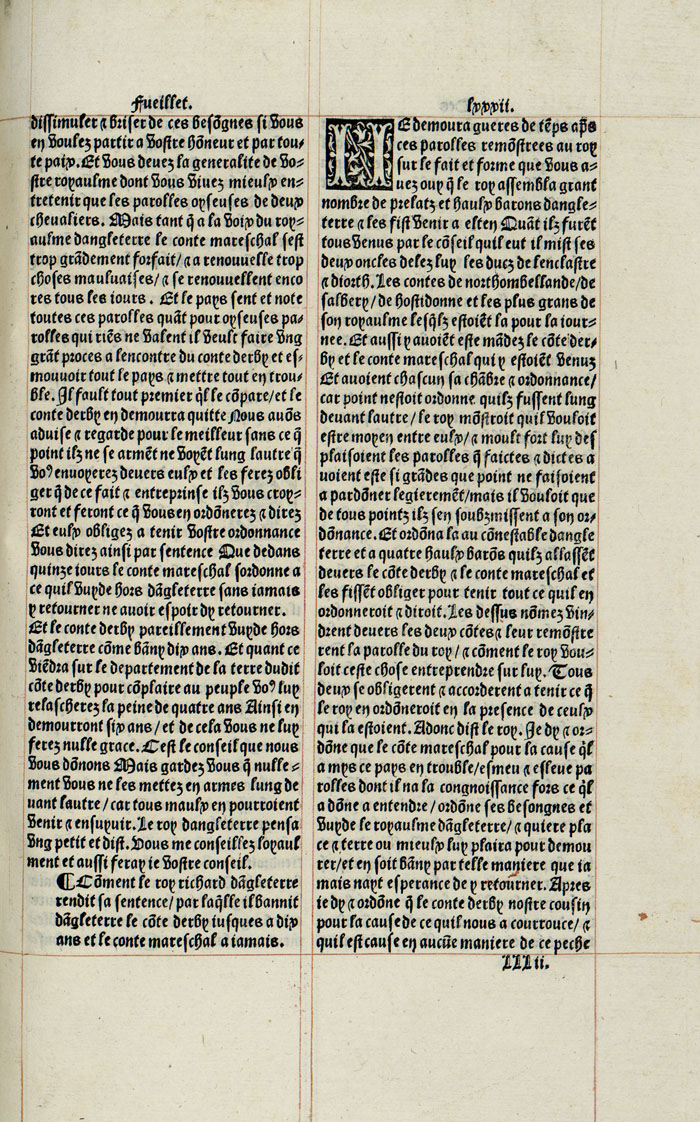 Fueillet.
dissimuler ⁊ briser de ces besõgnes si vous
en voulez partir a vostre hõneur et par tou-
te paix. Et vous deuez la generalite de vo-
stre royaulme dont vous viuez mieulx en-
tretenir que les parolles oyseuses de deux
cheualiers. Mais tant q̃ a la voix du roy-
aulme dangleterre le conte mareschal sest
trop grãdement forfait/⁊ a renouuelle trop
choses mauluaises/⁊ se renouuellent enco
res tous les iours. Et le pays sent et note
toutes ces parolles quãt pour oyseuses pa-
rolles qui riẽs ne valent il veult faire vng
grãt proces a lencontre du conte derby et es-
mouuoir tout le pays ⁊ mettre tout en trou-
ble. Il fault tout premier q̃l le cõpare/et le
conte derby en demourra quitte Nous auõs
aduise ⁊ regarde pour le meilleur sans ce q̃
point ilz ne se armẽt ne voyẽt lung lautre q̃
voꝰ enuoyerez deuers eulx et les ferez obli
ger q̃ de ce fait ⁊ entreprinse ilz vous croy-
ront et feront ce q̃ vous en ordõnerez ⁊ direz
Et eulx obligez a tenir vostre ordonnance
vous direz ainsi par sentence Que dedans
quinze iours le conte mareschal sordonne a
ce quil vuyde hors dãgleterre sans iamais
y retourner ne auoir espoir dy retourner.
Et le conte derby pareillement vuyde hors
dãgleterre cõme bãny dix ans. Et quant ce
viẽdra sur le departement de la terre dudit
cõte derby pour cõplaire au peuple voꝰ luy
relascherez la peine de quatre ans Ainsi en
demourront six ans/et de cela vous ne luy
ferez nulle grace. Cest le conseil que nous
vous dõnons Mais gardez vous q̃ nulle-
ment vous ne les mettez en armes lung de
uant lautre/car tous maulx en pourroient
venir ⁊ ensuyuir. Le roy dangleterre pensa
vng petit et dist. Vous me conseillez loyaul
ment et aussi feray ie vostre conseil.
¶ Cõment le roy richard dãgleterre
rendit sa sentence/par laq̃lle il bannit
dãgleterre le cõte derby iusques a dix
ans et le conte mareschal a iamais.
lxxxii.
NE demoura gueres de tẽps ap̃s
ces parolles remõstrees au roy
sur le fait et forme que vous a-
uez ouy q̃ le roy assembla grant
nombre de prelatz et haulx barons dangle-
terre ⁊ les fist venir a elten Quãt ilz furẽt
tous venus par le cõseil quil eut il mist ses
deux oncles delez luy les ducz de lenclastre
⁊ diorth. Les contes de northombellande/de
salbery/de hostidonne et les plus grans de
son royaulme lesq̃lz estoiẽt la pour la iour-
nee. Et aussi y auoiẽt este mãdez le cõte der-
by et le conte mareschal qui y estoiẽt venuz
Et auoient chascun sa chãbre ⁊ ordonnance/
car point nestoit ordonne quilz fussent lung
deuant lautre/le roy mõstroit quil vouloit
estre moyen entre eulx/⁊ moult fort luy des
plaisoient les parolles q̃ faictes ⁊ dictes a
uoient este si grãdes que point ne faisoient
a pardõner legieremẽt/mais il vouloit que
de tous pointz ilz sen soubzmissent a son or-
dõnance. Et ordõna la au cõnestable dangle
terre et a quatre haulx barõs quilz allassẽt
deuers le cõte derby ⁊ le conte mareschal et
les fissẽt obliger pour tenir tout ce quil en
ordonneroit ⁊ diroit. Les dessus nõmez vin-
drent deuers les deux cõtes ⁊ leur remõstre
rent la parolle du roy/⁊ cõment le roy vou-
loit ceste chose entreprendre sur luy. Tous
deux se obligerent ⁊ accorderent a tenir ce q̃
le roy en ordõneroit en la presence de ceulx
qui la estoient. Adonc dist le roy. Je dy ⁊ or-
dõne que le cõte mareschal pour la cause q̃l
a mys ce pays en trouble/esmeu ⁊ esleue pa
rolles dont il na la congnoissance fors ce q̃l
a dõne a entendre/ordõne ses besongnes et
vuyde le royaulme dãgleterre/⁊ quiere pla
ce ⁊ terre ou mieulx luy plaira pour demou
rer/et en soit bãny par telle maniere que ia
mais nayt esperance de y retourner. Apres
ie dy ⁊ ordõne q̃ le conte derby nostre cousin
pour la cause de ce quil nous a courrouce/⁊
quil est cause en aucũe maniere de ce peche
LLL ii.